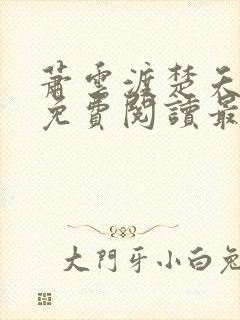 蕭雲渡楚天
免費閱讀最
大門牙小白兔